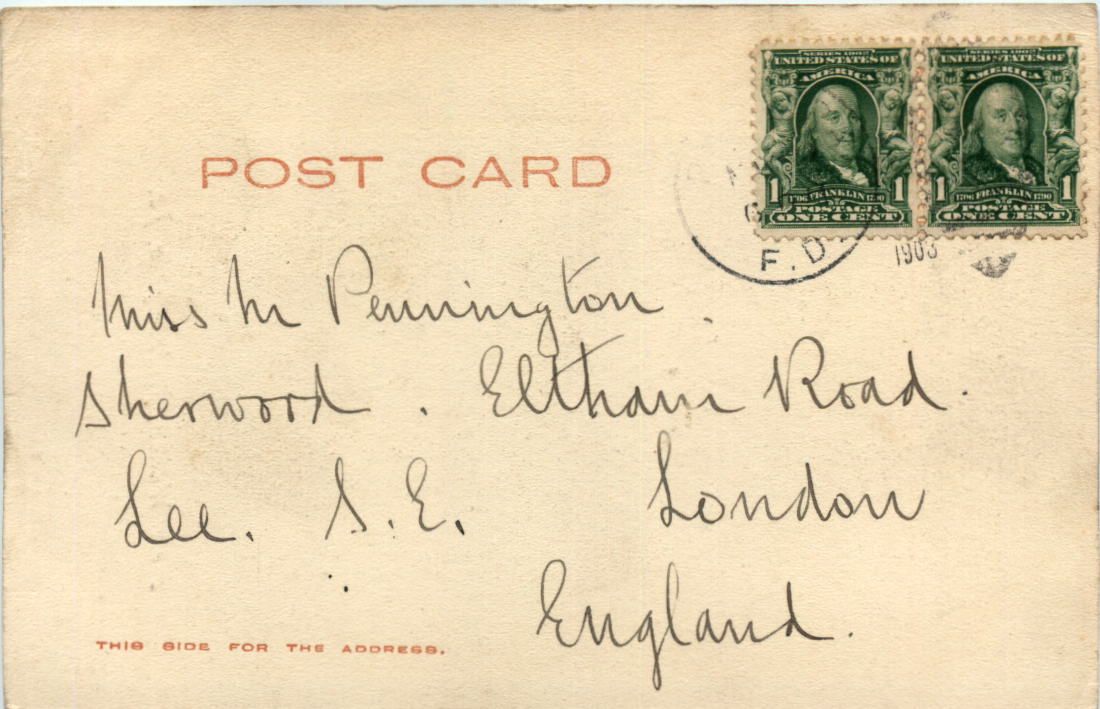 SERIES 1902
UNITED STATES OF
AMERICA
1 1
1706 FRANKLIN 1790
POSTAGE
ONE CENT
SERIES 1902
UNITED STATES OF
AMERICA
1 1
1706 FRANKLIN 1790
POSTAGE
ONE CENT
POST CARD
F. D.
1903
Miss M Pennington
Sherwood. Eltham Road.
Lee. S. E. London
England.
THIS SIDE FOR THE ADDRESS.